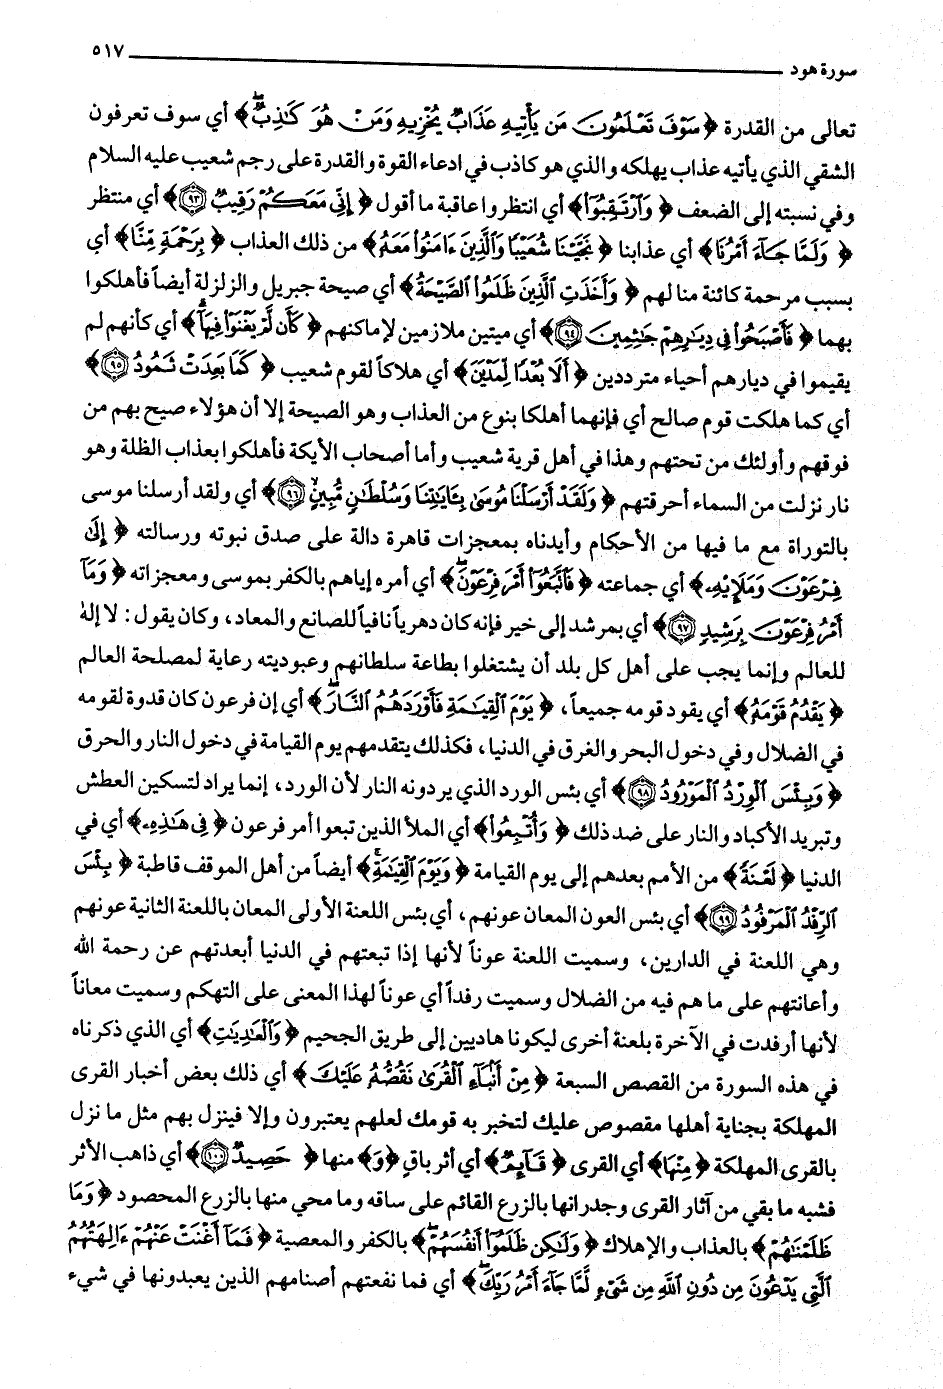 سورة هود
٥١٧
تعالى من القدرة ﴿ سَوْفَ تَعْلَمُونَ مَن يَأْتِيهِ عَذَابٌ يُخْزِيهِ وَمَنْ هُوَ كَاذِبٌ ﴾ أي سوف تعرفون
الشقي الذي يأتيه عذاب يهلكه والذي هو كاذب في ادعاء القوة والقدرة على رجم شعيب عليه السلام
وفي نسبته إلى الضعف ﴿ وَٱرْتَقِبُوٓا۟ ﴾ أي انتظروا عاقبة ما أقول ﴿ إِنِّي مَعَكُمْ رَقِيبٌ ﴿٩٣﴾ ﴾ أي منتظر
﴿ وَلَمَّا جَآءَ أَمْرُنَا ﴾ أي عذابنا ﴿ نَجَّيْنَا شُعَيْبًا وَٱلَّذِينَ ءَامَنُوا۟ مَعَهُۥ ﴾ من ذلك العذاب ﴿ بِرَحْمَةٍ مِّنَّا ﴾ أي
بسبب مرحمة كائنة منا لهم ﴿ وَأَخَذَتِ ٱلَّذِينَ ظَلَمُوا۟ ٱلصَّيْحَةُ ﴾ أي صيحة جبريل والزلزلة أيضاً فأهلكوا
بهما ﴿ فَأَصْبَحُوا۟ فِى دِيَٰرِهِمْ جَٰثِمِينَ ﴿٩٤﴾ ﴾ أي ميتين ملازمين لإماكنهم ﴿ كَأَن لَّمْ يَغْنَوْا۟ فِيهَآ ﴾ أي كأنهم لم
يقيموا في ديارهم أحياء مترددين ﴿ أَلَا بُعْدًا لِّمَدْيَنَ ﴾ أي هلاكاً لقوم شعيب ﴿ كَمَا بَعِدَتْ ثَمُودُ ﴿٩٥﴾ ﴾
أي كما هلكت قوم صالح أي فإنهما أهلكا بنوع من العذاب وهو الصيحة إلا أن هؤلاء صيح بهم من
فوقهم وأولئك من تحتهم وهذا في أهل قرية شعيب وأما أصحاب الأيكة فأهلكوا بعذاب الظلة وهو
نار نزلت من السماء أحرقتهم ﴿ وَلَقَدْ أَرْسَلْنَا مُوسَىٰ بِـَٔايَٰتِنَا وَسُلْطَٰنٍ مُّبِينٍ ﴿٩٦﴾ ﴾ أي ولقد أرسلنا موسى
بالتوراة مع ما فيها من الأحكام وأيدناه بمعجزات قاهرة دالة على صدق نبوته ورسالته ﴿ إِلَىٰ
فِرْعَوْنَ وَمَلَإِي۟هِۦ ﴾ أي جماعته ﴿ فَٱتَّبَعُوٓا۟ أَمْرَ فِرْعَوْنَ ﴾ أي أمره إياهم بالكفر بموسى ومعجزاته ﴿ وَمَآ
أَمْرُ فِرْعَوْنَ بِرَشِيدٍ ﴿٩٧﴾ ﴾ أي بمرشد إلى خير فإنه كان دهرياً نافياً للصانع والمعاد، وكان يقول: لا إله
للعالم وإنما يجب على أهل كل بلد أن يشتغلوا بطاعة سلطانهم وعبوديته رعاية لمصلحة العالم
﴿ يَقْدُمُ قَوْمَهُۥ ﴾ أي يقود قومه جميعاً، ﴿ يَوْمَ ٱلْقِيَٰمَةِ فَأَوْرَدَهُمُ ٱلنَّارَ ﴾ أي إن فرعون كان قدوة لقومه
في الضلال وفي دخول البحر والغرق في الدنيا، فكذلك يتقدمهم يوم القيامة في دخول النار والحرق
﴿ وَبِئْسَ ٱلْوِرْدُ ٱلْمَوْرُودُ ﴿٩٨﴾ ﴾ أي بئس الورد الذي يردونه النار لأن الورد، إنما يراد لتسكين العطش
وتبريد الأكباد والنار على ضد ذلك ﴿ وَأُتْبِعُوا۟ ﴾ أي الملأ الذين تبعوا أمر فرعون ﴿ فِى هَٰذِهِۦ ﴾ أي في
الدنيا ﴿ لَعْنَةً ﴾ من الأمم بعدهم إلى يوم القيامة ﴿ وَيَوْمَ ٱلْقِيَٰمَةِ ﴾ أيضاً من أهل الموقف قاطبة ﴿ بِئْسَ
ٱلرِّفْدُ ٱلْمَرْفُودُ ﴿٩٩﴾ ﴾ أي بئس العون المعان عونهم، أي بئس اللعنة الأولى المعان باللعنة الثانية عونهم
وهي اللعنة في الدارين، وسميت اللعنة عوناً لأنها إذا تبعتهم في الدنيا أبعدتهم عن رحمة الله
وأعانتهم على ما هم فيه من الضلال وسميت رفداً أي عوناً لهذا المعنى على التهكم وسميت معاناً
لأنها أرفدت في الآخرة بلعنة أخرى ليكونا هاديين إلى طريق الجحيم ﴿ وَٱلْعَٰدِيَٰتِ ﴾ أي الذي ذكرناه
في هذه السورة من القصص السبعة ﴿ مِنْ أَنۢبَآءِ ٱلْقُرَىٰ نَقُصُّهُۥ عَلَيْكَ ﴾ أي ذلك بعض أخبار القرى
المهلكة بجناية أهلها مقصوص عليك لتخبر به قومك لعلهم يعتبرون وإلا فينزل بهم مثل ما نزل
بالقرى المهلكة ﴿ مِنْهَا ﴾ أي القرى ﴿ قَآئِمٌ ﴾ أي أثر باقٍ ﴿ وَ ﴾ منها ﴿ حَصِيدٌ ﴿١٠٠﴾ ﴾ أي ذاهب الأثر
فشبه ما بقي من آثار القرى وجدرانها بالزرع القائم على ساقه وما محي منها بالزرع المحصود ﴿ وَمَا
ظَلَمْنَٰهُمْ ﴾ بالعذاب والإهلاك ﴿ وَلَٰكِن ظَلَمُوٓا۟ أَنفُسَهُمْ ﴾ بالكفر والمعصية ﴿ فَمَآ أَغْنَتْ عَنْهُمْ ءَالِهَتُهُمُ
ٱلَّتِى يَدْعُونَ مِن دُونِ ٱللَّهِ مِن شَىْءٍ لَّمَّا جَآءَ أَمْرُ رَبِّكَ ﴾ أي فما نفعتهم أصنامهم الذين يعبدونها في شيء